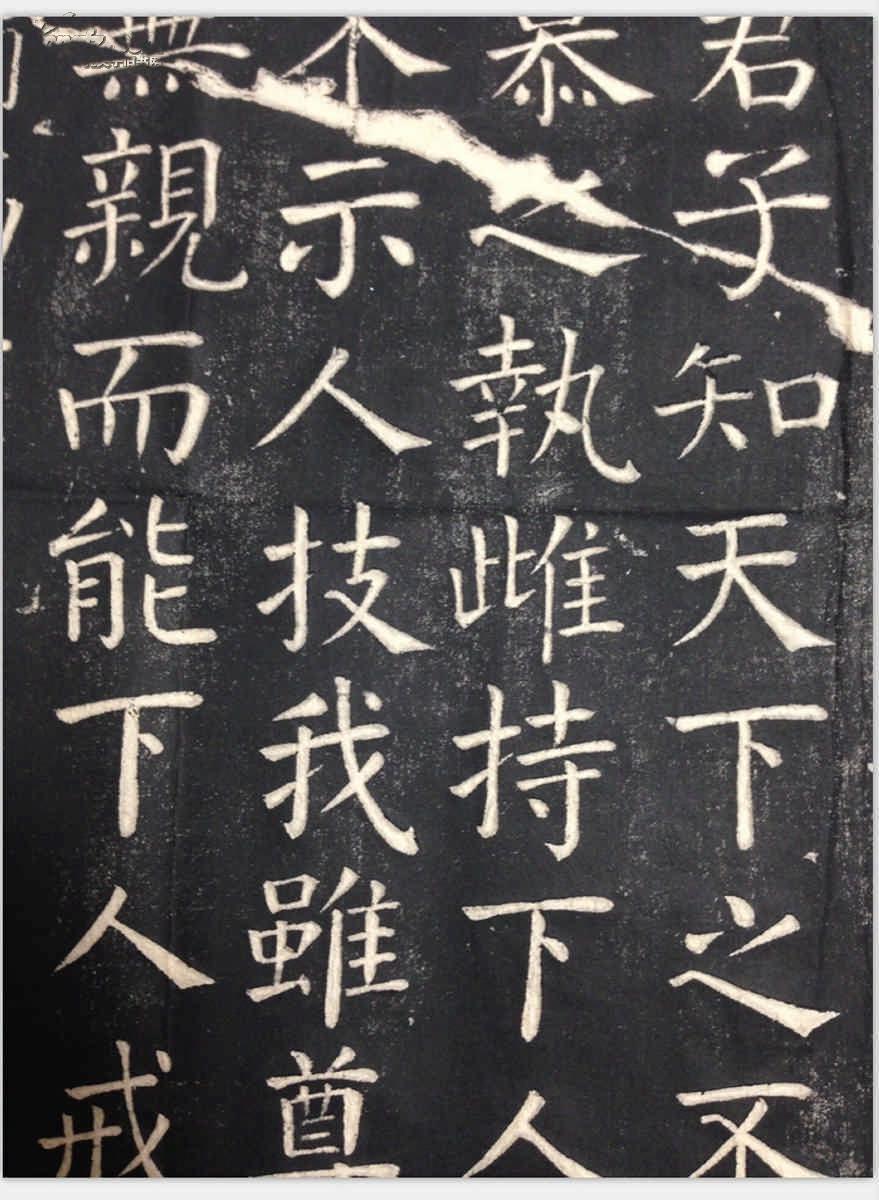 君子知天下之不
慕之執雌持下人
不示人技我雖尊
無親而能下人戒